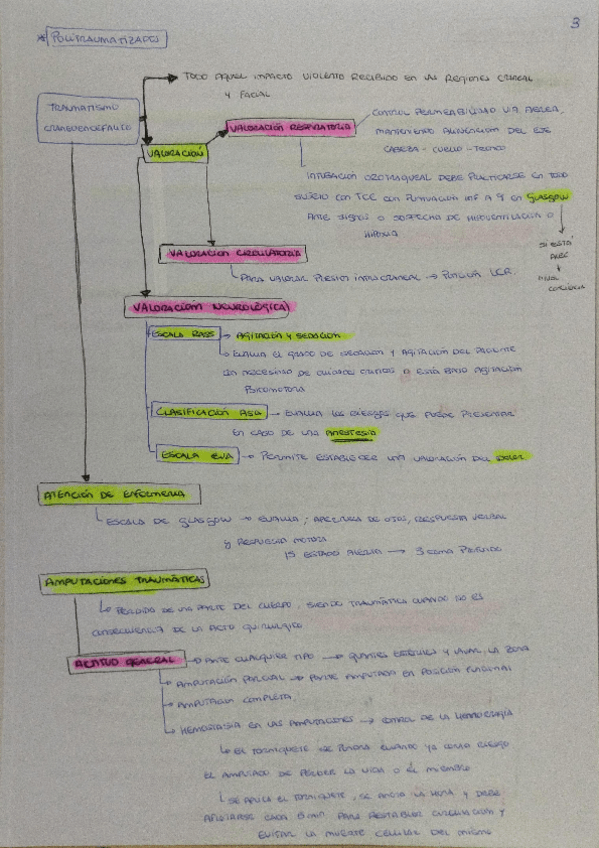 3
* POLITRAUMATIZADOS
TODO AQUEL IMPACTO VIOLENTO RECIBIDO EN LAS REGIONES CRANEAL
Y FACIAL
TRAUMATISMO
CRANEOENCEFÁLICO
VALORACIÓN
VALORACIÓN RESPIRATORIA
CONTROL PERMEABILIDAD VÍA AÉREA,
MANTENIENDO ALINEACIÓN DEL EJE
CABEZA - CUELLO - TRONCO
INTUBACIÓN OROTRAQUEAL DEBE PRACTICARSE EN TODO
SUJETO CON TCE CON PUNTUACIÓN INF A 9 EN GLASGOW
ANTE SIGNOS O SOSPECHA DE HIPOVENTILACIÓN O
HIPOXIA
SI ESTÁ
NIVEL
VALORACIÓN CIRCULATORIA
PARA VALORAR PRESIÓN INTRACRANEAL → PUNCIÓN LCR.
VALORACIÓN NEUROLÓGICA
ESCALA RASS → AGITACIÓN Y SEDACIÓN
EVALUA EL GRADO DE SEDACIÓN Y AGITACIÓN DEL PACIENTE
EN NECESIDAD DE CUIDADOS CRÍTICOS O ESTÁ BAJO AGITACIÓN
PSICOMOTORA
CLASIFICACIÓN ASA → EVALUA LOS RIESGOS QUE PUEDE PRESENTAR
EN CASO DE UNA ANESTESIA
ESCALA EVA → PERMITE ESTABLECER UNA VALORACIÓN DEL DOLOR
ATENCIÓN DE ENFERMERIA
ESCALA DE GLASGOW → EVALUA: APERTURA DE OJOS, RESPUESTA VERBAL
y RESPUESTA MOTORA
15 ESTADO ALERTA → 3 COMA PROFUNDO
AMPUTACIONES TRAUMÁTICAS
PÉRDIDO DE UNA PARTE DEL CUERPO, SIENDO TRAUMÁTICA CUANDO NO ES
CONSECUENCIA DE UN ACTO QUIRÚRGICO
ACTITUD GENERAL → ANTE CUALQUIER TIPO → GUANTES ESTÉRILES Y LAVAR LA ZONA
AMPUTACIÓN PARCIAL → PARTE AMPUTADA EN POSICIÓN FUNCIONAL
AMPUTACIÓN COMPLETA.
HEMOSTASIA EN LAS AMPUTACIONES → CONTROL DE LA HEMORRAGIA
EL TORNIQUETE SE PONDRÁ CUANDO YA CORRA RIESGO
EL AMPUTADO DE PERDER LA VIDA O EL MIEMBRO
SE APLICA EL TORNIQUETE, SE ANOTA LA HORA Y DEBE
AFLOJARSE CADA MIN PARA RESTABLECER CIRCULACIÓN Y
EVITAR LA MUERTE CELULAR DEL MISMO